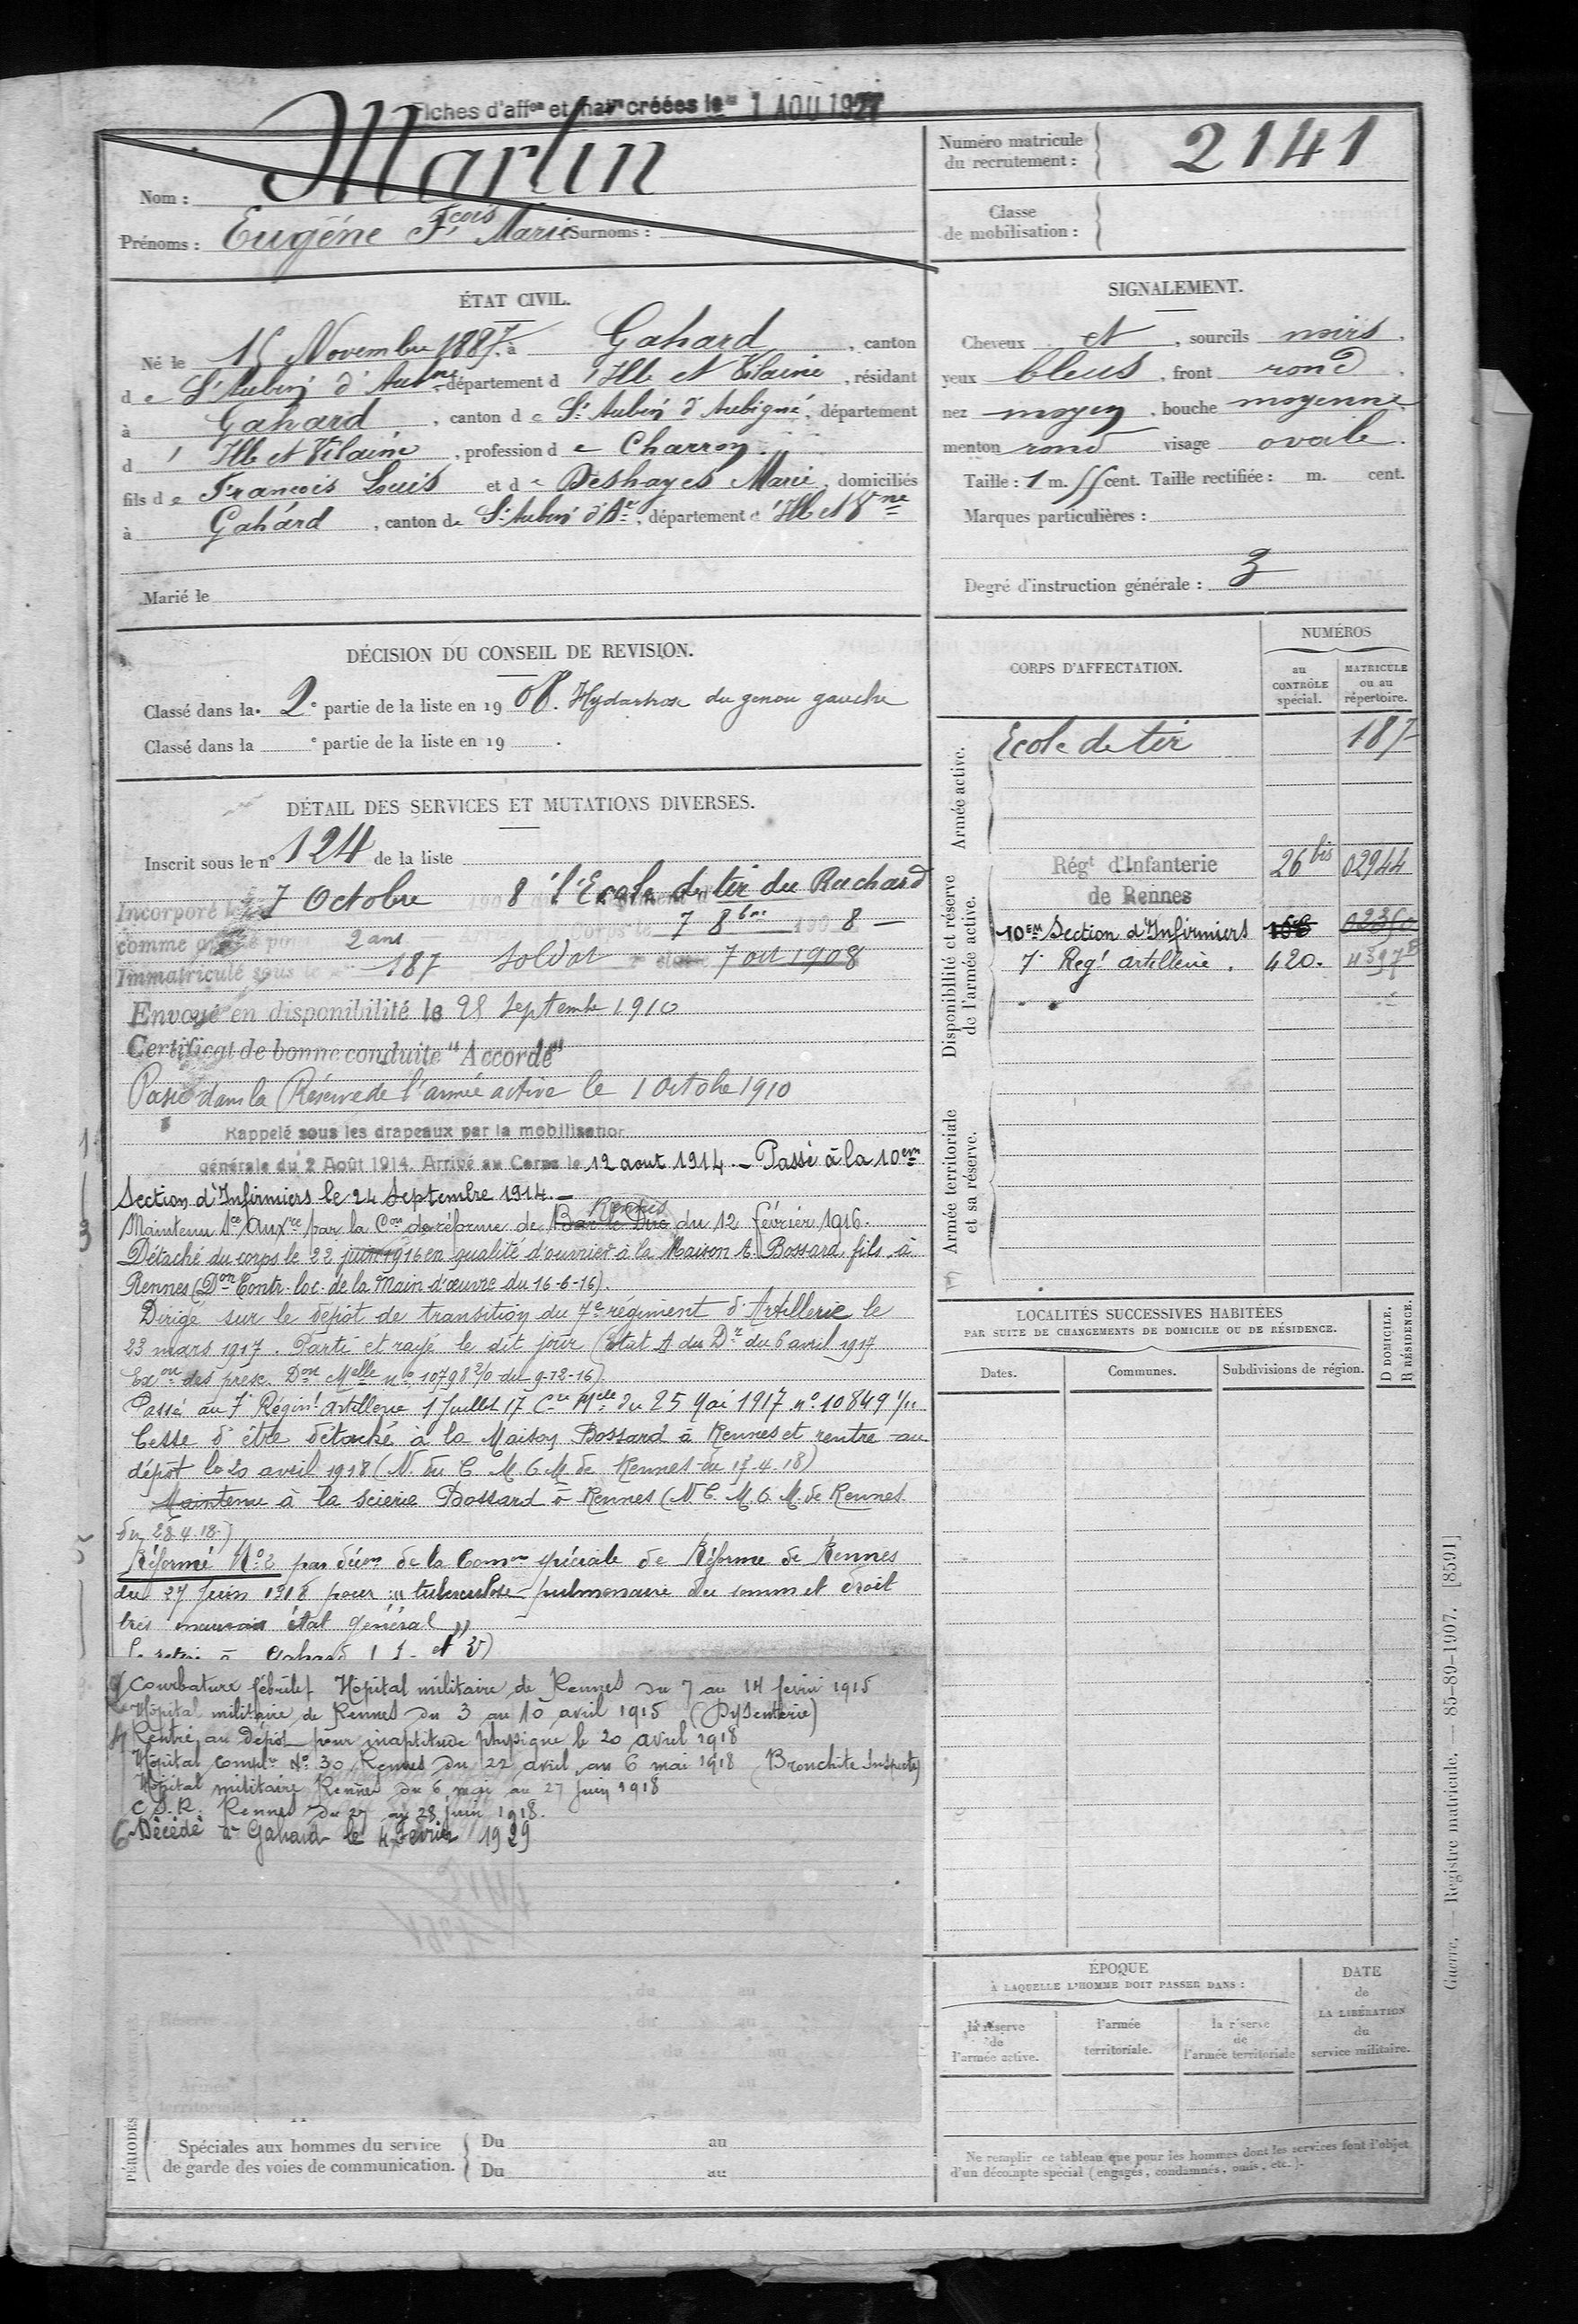 Fiches d'affon et matr créées le 1 AOU 1927
Nom : Martin
Prénoms : Eugène Fçois Marie Surnoms :
Numéro matricule
du recrutement : 2141
Classe
de mobilisation :
ÉTAT CIVIL.
Né le 15 Novembre 1887, à Gahard, canton
de St Aubin d'Aubné, département d'Ille et Vilaine, résidant
à Gahard, canton de St Aubin d'Aubigné, département
d'Ille et Vilaine, profession de Charron.
fils de François Louis et de Deshayes Marie, domiciliés
à Gahard, canton de St Aubin d'Aé, département d'Ille et Vne
Marié le
SIGNALEMENT.
Cheveux et, sourcils noirs,
yeux bleus, front rond,
nez moyen, bouche moyenne,
menton rond visage ovale.
Taille : 1 m. 55 cent. Taille rectifiée : m. cent.
Marques particulières :
Degré d'instruction générale : 3
DÉCISION DU CONSEIL DE REVISION.
Classé dans la 2e partie de la liste en 1908. Hydarthrose du genou gauche
Classé dans la e partie de la liste en 19 .
DÉTAIL DES SERVICES ET MUTATIONS DIVERSES.
Inscrit sous le n° 124 de la liste
Incorporé le 7 Octobre 1908 à l'Ecole de tir du Ruchard
comme pour 2 ans Corps le 7 8bre 1908
Immatriculé sous le n° 187 Soldat 2e classe 7 oct 1908
Envoyé en disponibilité le 28 Septembre 1910
Certificat de bonne conduite "Accordé"
Passé dans la Réserve de l'armée active le 1 Octobre 1910
Rappelé sous les drapeaux par la mobilisation
générale du 2 Août 1914. Arrivé au Corps le 12 aout 1914. - Passé à la 10em
Section d'Infirmiers le 24 Septembre 1914. -
Maintenu Sce Auxre par la Con de réforme de Bar le Duc Rennes du 12 février 1916.
Détaché du corps le 22 juin 1916 en qualité d'ouvrier à la Maison A. Bossard fils à
Rennes (Don Contr. loc. de la Main d'œuvre du 16-6-16).
Dirigé sur le dépôt de transition du 7e régiment d'Artillerie le
23 mars 1917. Parti et rayé le dit jour (Etat A du Dr du 6 avril 1917
Exon des presc. Don Melle n° 10798 2/0 du 9-12-16)
Passé au 7e Régint artillerie 1 Juillet 17 Cre Melle du 25 Mai 1917 n° 10849 1/11
Cesse d'être détaché à la Maison Bossard à Rennes et rentre au
dépôt le 20 avril 1918 (N. du C M O M de Rennes du 17.4.18)
Maintenu à la scierie Bossard à Rennes (N C. M. O. M. de Rennes
du 28.4.18.)
Réformé N° 2 par décon de la Comon spéciale de Réforme de Rennes
du 27 Juin 1918 pour "tuberculose pulmonaire du sommet droit
très mauvais état général"
Se retire à Gahard (I. et V)
Courbature fébrile Hôpital militaire de Rennes du 7 au 14 février 1915
Hôpital militaire de Rennes du 3 au 10 avril 1915 (Dysenterie)
Rentré au Dépôt pour inaptitude physique le 20 avril 1918
Hôpital complre N° 30 Rennes du 22 avril au 6 mai 1918 (Bronchite suspecte)
Hôpital militaire Rennes du 6 mai au 27 Juin 1918
C.S.R. Rennes du 27 au 28 Juin 1918.
Décédé à Gahard le 4 Février 1929
Spéciales aux hommes du service
de garde des voies de communication.
Du au
Du au
PÉRIODES
CORPS D'AFFECTATION.
NUMÉROS
au
CONTRÔLE
spécial.
MATRICULE
ou au
répertoire.
Armée active.
Ecole de tir 187
Disponibilité et réserve
de l'armée active.
Régt d'Infanterie 26 bis 02944
de Rennes
10EM Section d'Infirmiers
7e Regt artillerie. 420.
Armée territoriale
et sa réserve.
LOCALITÉS SUCCESSIVES HABITÉES
PAR SUITE DE CHANGEMENTS DE DOMICILE OU DE RÉSIDENCE.
Dates. Communes. Subdivisions de région.
D DOMICILE.
R RÉSIDENCE.
ÉPOQUE
À LAQUELLE L'HOMME DOIT PASSER DANS :
la réserve
de
l'armée active.
l'armée
territoriale.
la réserve
de
l'armée territoriale
DATE
de
LA LIBÉRATION
du
service militaire.
Ne remplir ce tableau que pour les hommes dont les services font l'objet
d'un décompte spécial (engagés, condamnés, omis, etc.).
Guerre. — Registre matricule. — 85-89-1907. [8591]